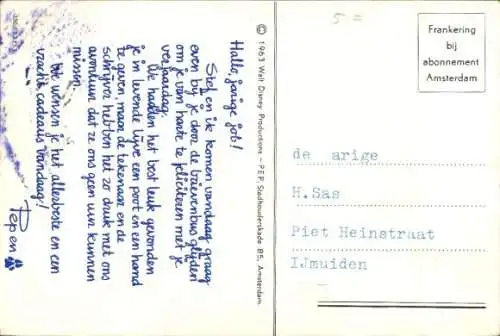 Hallo, jarige job!
Stef en ik komen vandaag graag
even bij je door de brievenbus glijden
om je van harte te feliciteren met je
verjaardag.
We hadden het best leuk gevonden
je in levende lijve een poot en een hand
te geven, maar de tekenaar en de
schrijver hebben het zo druk met ons
avontuur, dat ze ons geen uur kunnen
missen.
We wensen je het allerbeste en een
vracht cadeaus vandaag!
Pep en
© 1963 Walt Disney Productions – P.E.P. Stadhouderskade 85, Amsterdam.
5 =
Frankering
bij
abonnement
Amsterdam
de arige
H.Sas
Piet Heinstraat
IJmuiden